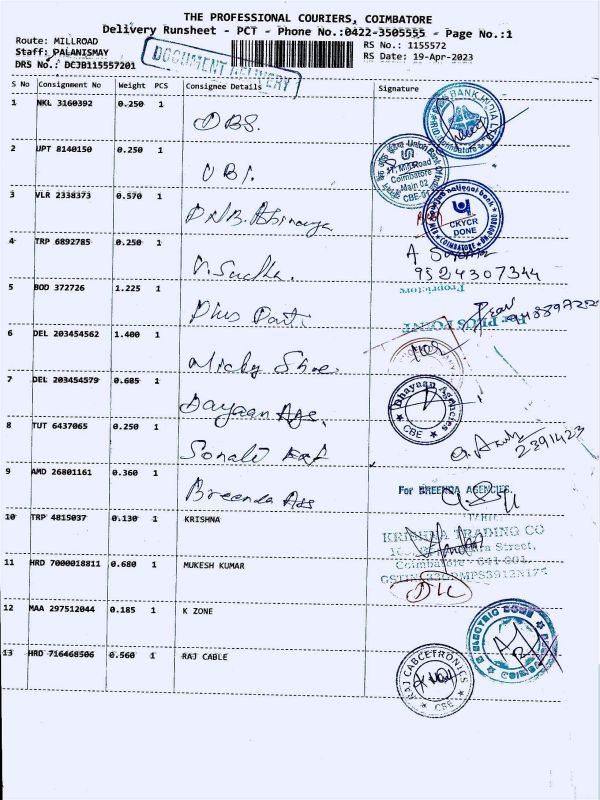 THE PROFESSIONAL COURIERS, COIMBATORE
Delivery Runsheet - PCT - Phone No.:0422-3505555 - Page No.:1
Route: MILLROAD RS No.: 1155572
Staff: PALANISMAY RS Date: 19-Apr-2023
DRS No.: DCJB115557201
DOCUMENT DELIVERY
S No Consignment No Weight PCS Consignee Details Signature
1 NKL 3160392 0.250 1 DBS.
BANK INDIA LTD
Coimbatore
2 UPT 8140150 0.250 1 UBI.
Union Bank
Mill Road
Coimbatore
Main 02
CBE-01
3 VLR 2338373 0.570 1 PNB. Abinaya
punjab national bank
CKYCR
DONE
COIMBATORE
4 TRP 6892785 0.250 1 V. Sudha.
A
9524307344
5 BOD 372726 1.225 1 Plus Point.
Proprietor
For PLUS POINT
6 DEL 203454562 1.400 1 Micky Shoe.
7 DEL 203454579 0.685 1 Dayaan Ags.
Dhayaan Agencies
CBE
8 TUT 6437065 0.250 1 Sonali
2391423
9 AMD 26801161 0.360 1 Breenda Ags
For BREENDA AGENCIES
10 TRP 4815037 0.130 1 KRISHNA
KRISHNA TRADING CO
Street,
Coimbatore - 641 001.
11 HRD 7000018811 0.680 1 MUKESH KUMAR
12 MAA 297512044 0.185 1 K ZONE
ELECTRIC ZONE
13 HRD 716468506 0.560 1 RAJ CABLE
RAJ CABCETRONICS
CBE